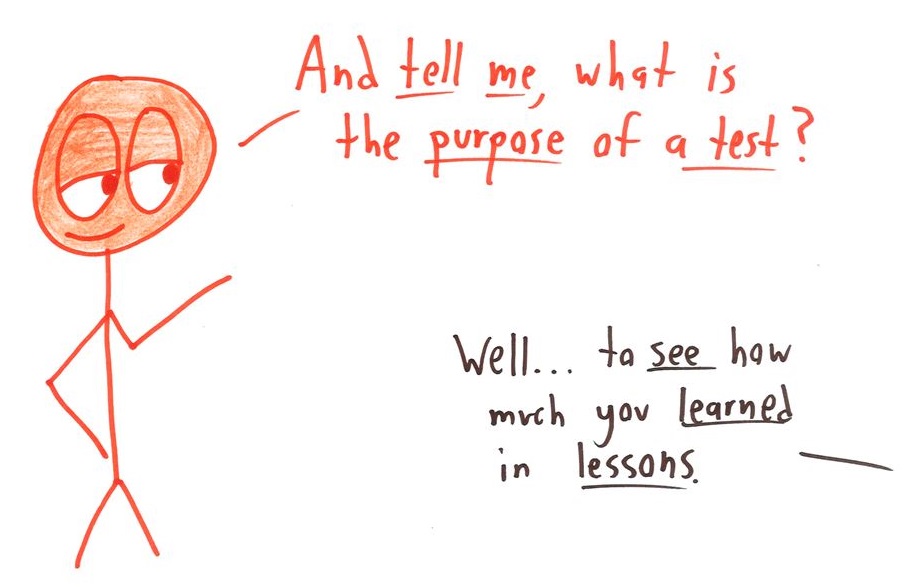 And tell me, what is
the purpose of a test?
Well... to see how
much you learned
in lessons.